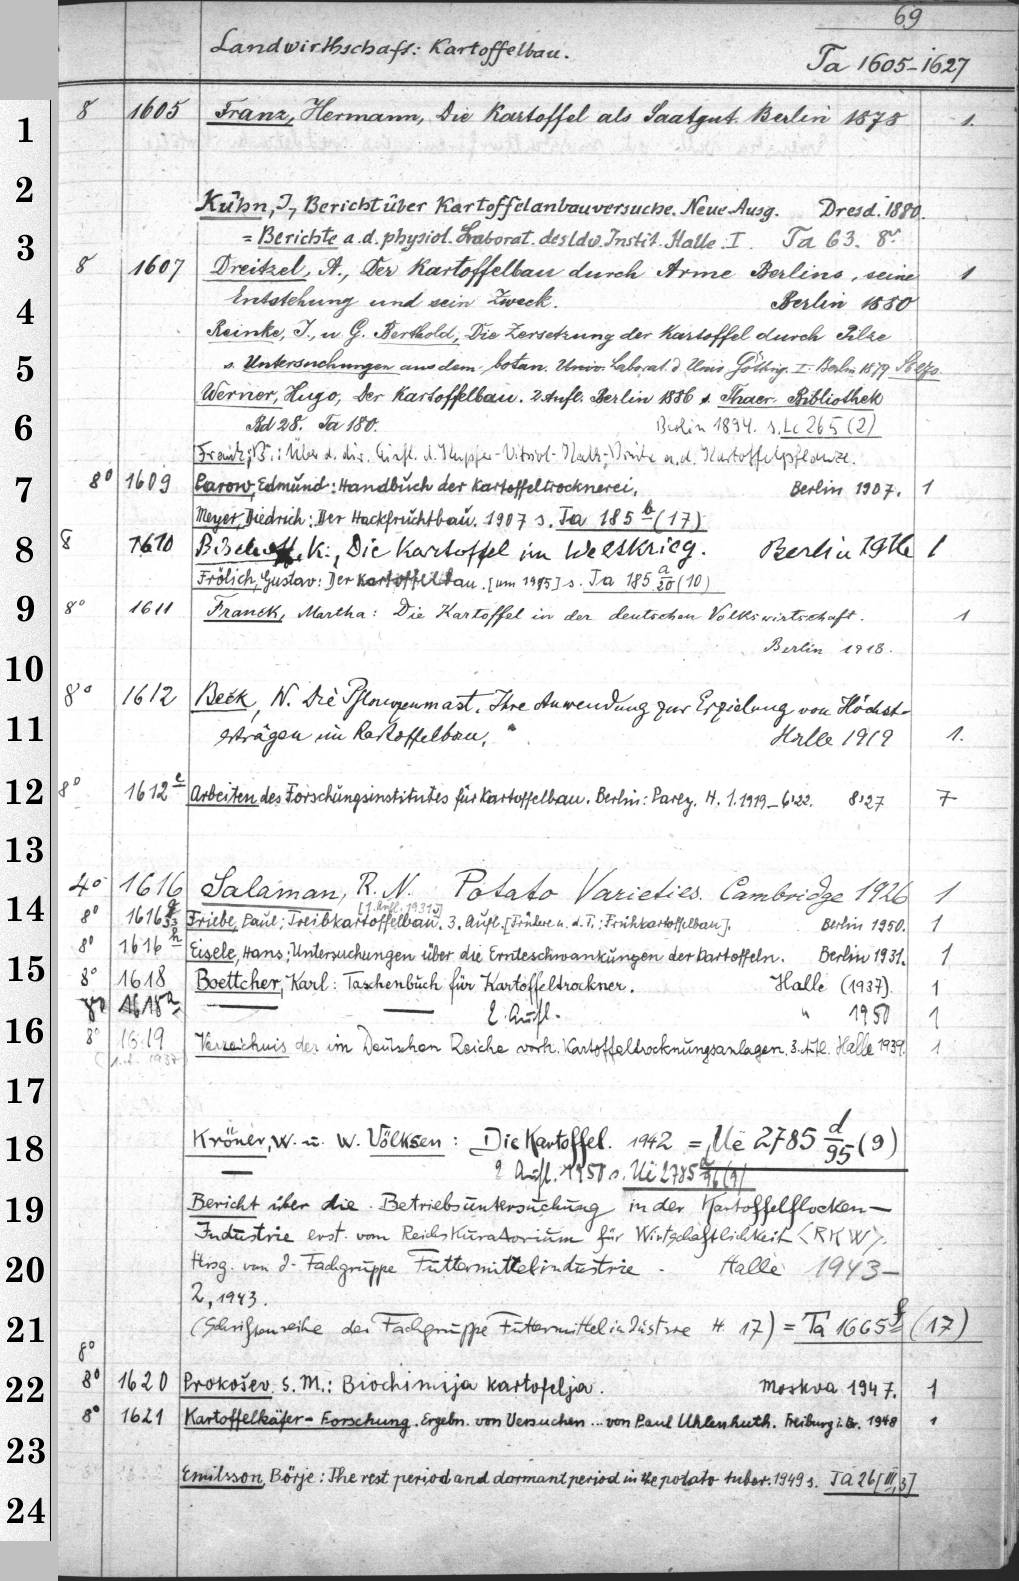 69
Landwirthschaft: Kartoffelbau.
Ta 1605-1627
1
8 1605 Franz, Hermann, Die Kartoffel als Saatgut Berlin 1878 1.
2
Kühn, J., Bericht über Kartoffelanbauversuche. Neue Ausg. Dresd. 1880.
3
= Berichte a. d. physiol. Laborat. des ldw. Instit. Halle. I. Ta 63. 8°.
8 1607 Dreitzel, A., Der Kartoffelbau durch Arme Berlins, seine 1
4
Entstehung und sein Zweck. Berlin 1880
Reinke, J., u G. Berthold, Die Zersetzung der Kartoffel durch Pilze
5
s. Untersuchungen aus dem botan. Univ. Laborat. d Univ Götting. I. Berlin 1879
Werner, Hugo, Der Kartoffelbau. 2 Aufl. Berlin 1886 s. Thaer-Bibliothek
6
Bd 28. Ta 180. Berlin 1894. s. Lc 265 (2)
Frank, B.: Über d. dir. Einfl. d. Kupfer-Vitriol-Kalk-Brühe a. d. Kartoffelpflanze.
7
8° 1609 Parow, Edmund: Handbuch der Kartoffeltrocknerei. Berlin 1907. 1
Meyer, Diedrich: Der Hackfruchtbau. 1907 s. Ta 185 b (17)
8
8 1610 K., Die Kartoffel im Weltkrieg. Berlin 1916 1
Frölich, Gustav: Der Kartoffelbau. s. Ta 185 a/20 (10)
9
8° 1611 Franck, Martha: Die Kartoffel in der deutschen Volkswirtschaft. 1
Berlin 1918.
10
8° 1612 Beck, N. Die Pflanzenmast. Ihre Anwendung zur Erzielung von Höchst-
11
erträgen im Kartoffelbau. Halle 1919 1.
12
8° 1612 e Arbeiten des Forschungsinstitutes für Kartoffelbau. Berlin: Parey. H. 1. 1919 - 6'22. 8'27 7
13
4° 1616 Salaman, R. N. Potato Varieties. Cambridge 1926 1
[1. Aufl. 1931]
14
8° 1616 g Friebe, Paul; Treibkartoffelbau. 3. Aufl. [Frühere u. d. T.: Frühkartoffelbau]. Berlin 1950. 1
8° 1616 h Eisele, Hans; Untersuchungen über die Ernteschwankungen der Kartoffeln. Berlin 1931. 1
15
8° 1618 Boettcher, Karl: Taschenbuch für Kartoffeltrockner. Halle (1937). 1
8° 1618 a — — 2. Aufl. " 1950 1
16
8° 1619 Verzeichnis der im Deutschen Reiche vorh. Kartoffeltrocknungsanlagen. 3. Aufl. Halle 1939. 1
17
18
Kröner, W. u. W. Völksen: Die Kartoffel. 1942 = Ue 2785 d/95 (9)
— 2 Aufl. 1950 s. Ui 2785 (9)
19
Bericht über die Betriebsuntersuchung in der Kartoffelflocken-
Industrie erst. vom Reichskuratorium für Wirtschaftlichkeit <RKW>.
20
Hrsg. von d. Fachgruppe Futtermittelindustrie. Halle 1943-
2, 1943.
21
(Schriftenreihe der Fachgruppe Futtermittelindustrie H. 17) = Ta 1665 f (17)
8°
22
8° 1620 Prokošev S. M.: Biochimija kartofelja. Moskva 1947. 1
8° 1621 Kartoffelkäfer-Forschung. Ergebn. von Versuchen ... von Paul Uhlenhuth. Freiburg i. Br. 1948 1
23
Emilsson, Börje: The rest period and dormant period in the potato tuber. 1949 s. Ta 26 [III, 3]
24